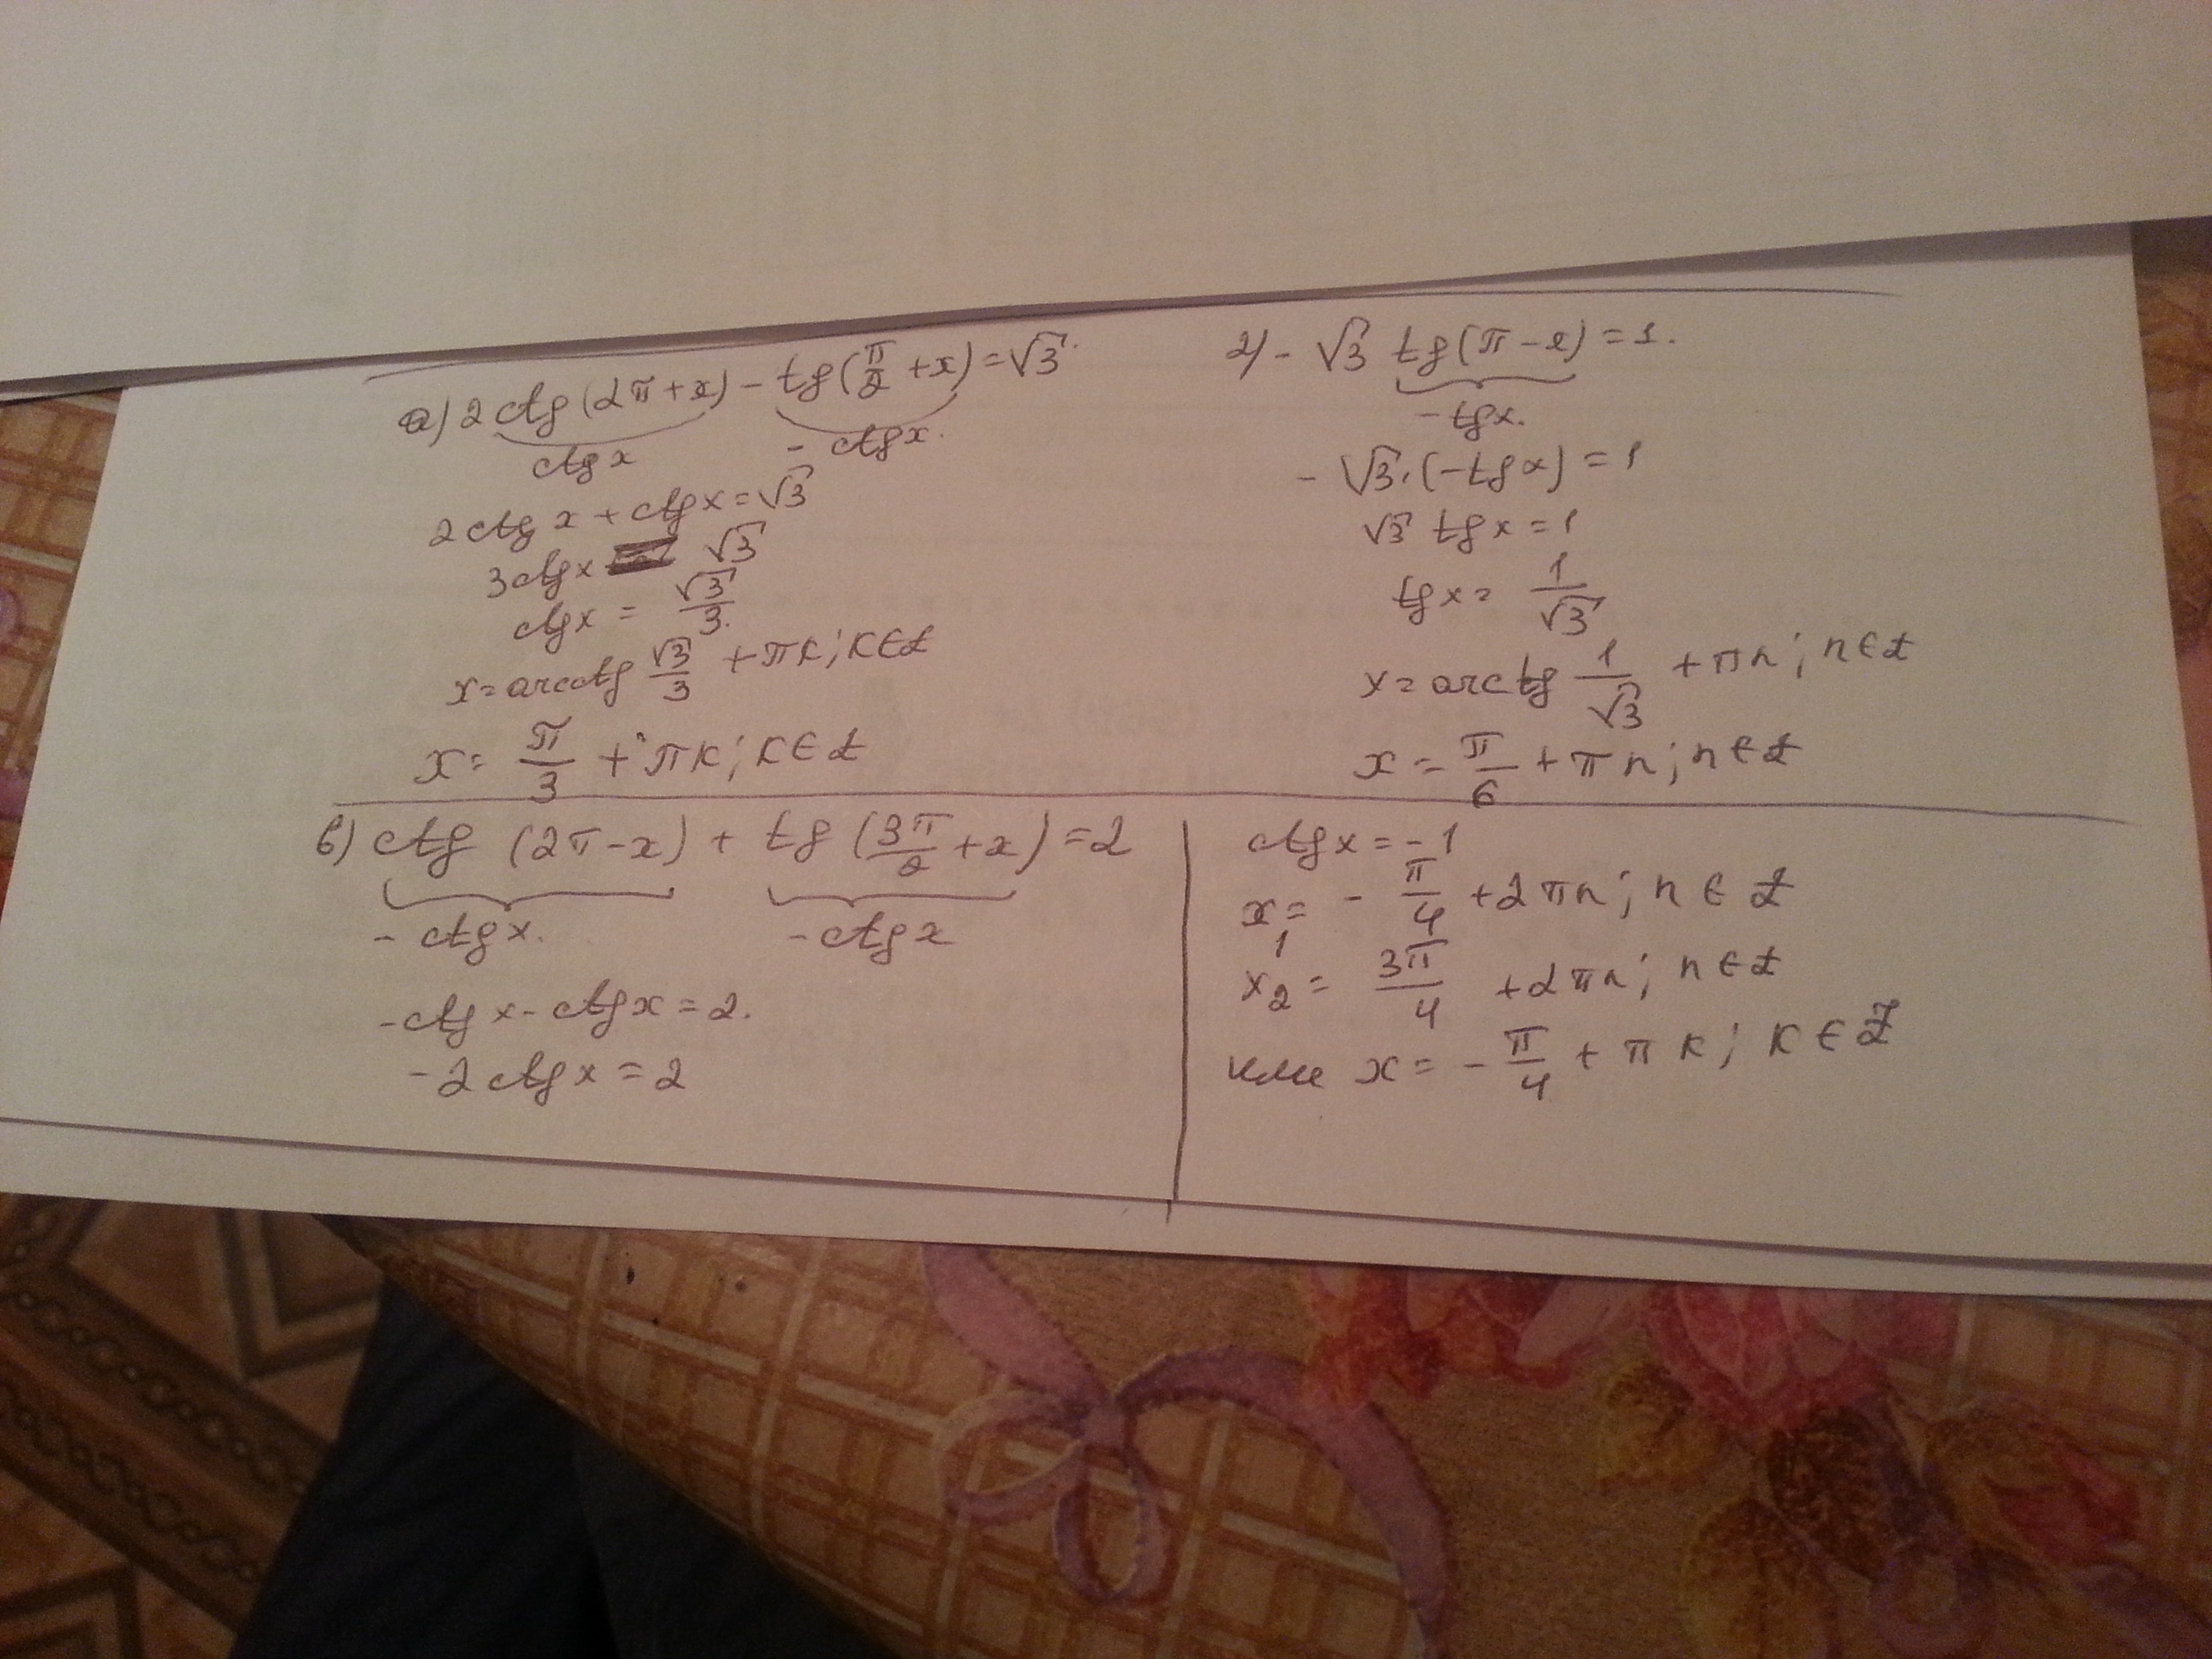 а) 2 ctg (2π + x) − tg (π/2 + x) = √3.
ctg x − ctg x.
2 ctg x + ctg x = √3
3 ctg x √3
ctg x = √3/3.
x = arcctg √3/3 + πk; k ∈ Z
x = π/3 + πk; k ∈ Z
г) − √3 tg (π − x) = 1.
− tg x.
− √3 · (− tg x) = 1
√3 tg x = 1
tg x = 1/√3
x = arctg 1/√3 + πn; n ∈ Z
x = π/6 + πn; n ∈ Z
в) ctg (2π − x) + tg (3π/2 + x) = 2
− ctg x. − ctg x
− ctg x − ctg x = 2.
− 2 ctg x = 2
ctg x = − 1
x₁ = − π/4 + 2πn; n ∈ Z
x₂ = 3π/4 + 2πn; n ∈ Z
или x = − π/4 + πk; k ∈ Z